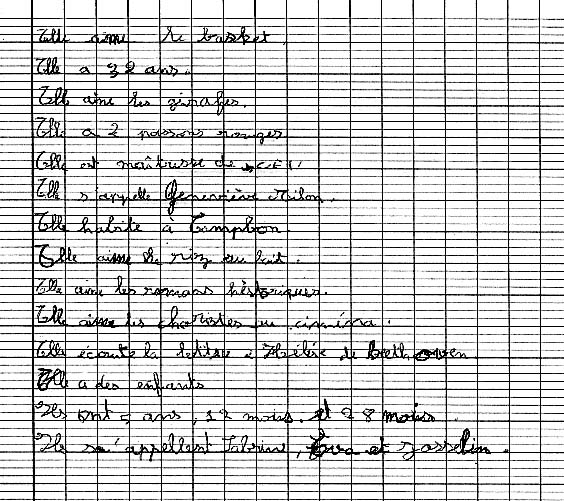 Elle aime le basket.
Elle a 32 ans.
Elle aime les girafes.
Elle a 2 poissons rouges
Elle est maîtresse de CE1.
Elle s'appelle Geneviève
Elle habite à
Elle aime le riz au lait.
Elle aime les romans historiques.
Elle aime les choristes au cinéma.
Elle écoute la lettre à Hélèse de Beethowen
Elle a des enfants
Ils ont 5 ans, 12 mois. et 28 mois.
Ils s'appellent Sabrine, Eva et Josselin.